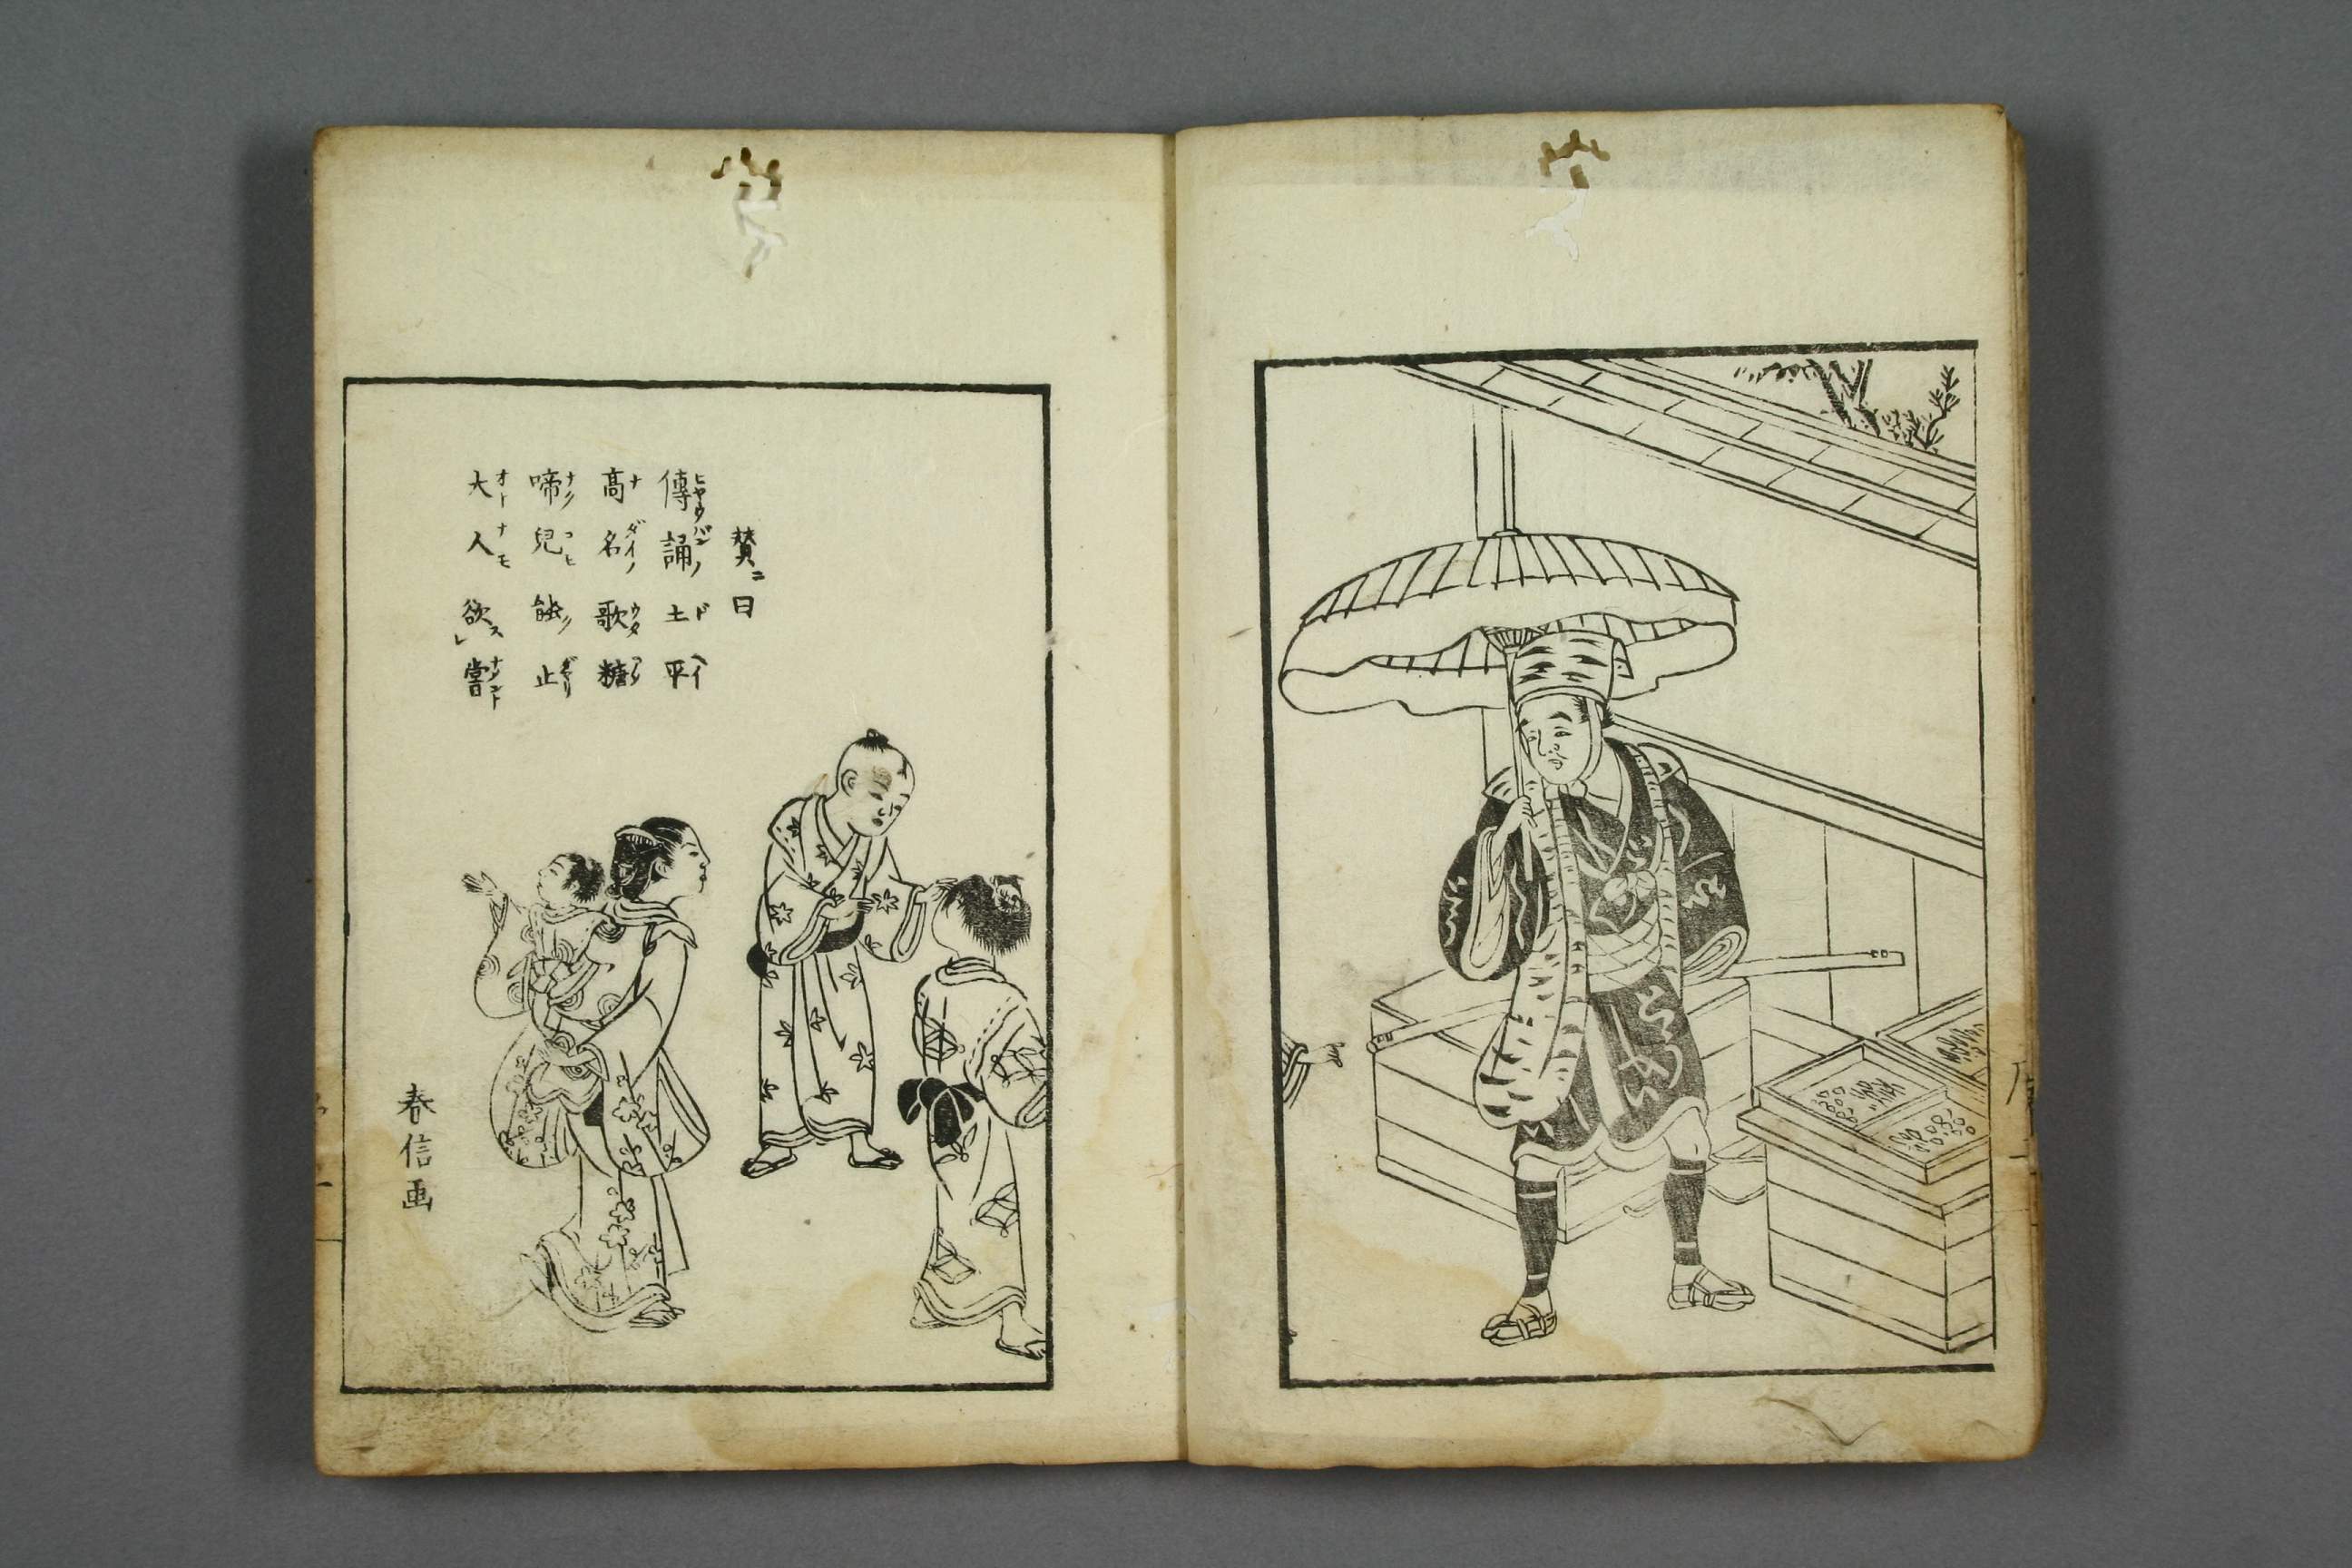 賛ニ曰
傳誦土平
高名歌糖
啼兒能止
大人欲嘗
春信画